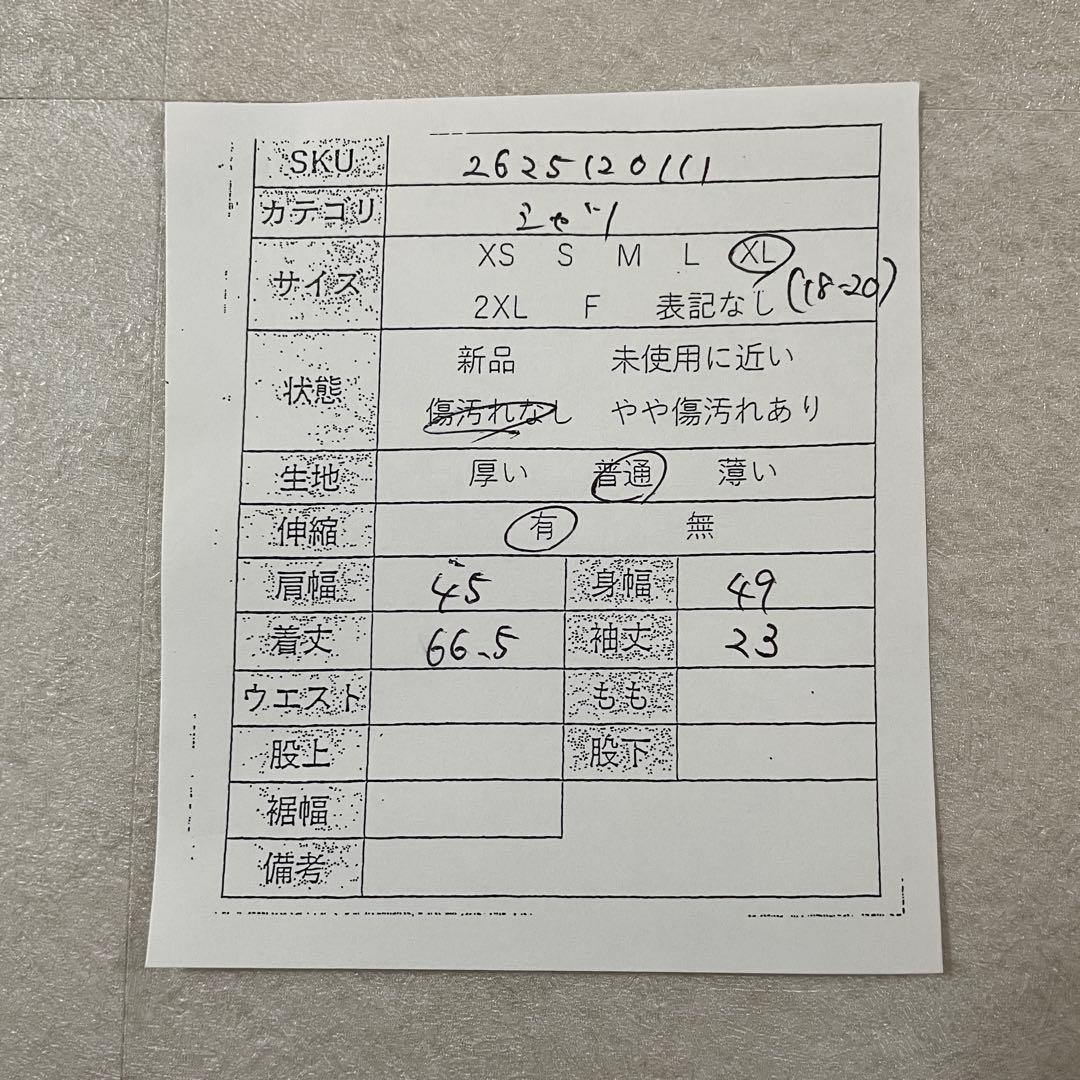 SKU 2625120111
カテゴリ シャツ
サイズ XS S M L XL
2XL F 表記なし (18-20)
状態 新品 未使用に近い
傷汚れなし やや傷汚れあり
生地 厚い 普通 薄い
伸縮 有 無
肩幅 45 身幅 49
着丈 66.5 袖丈 23
ウエスト もも
股上 股下
裾幅
備考